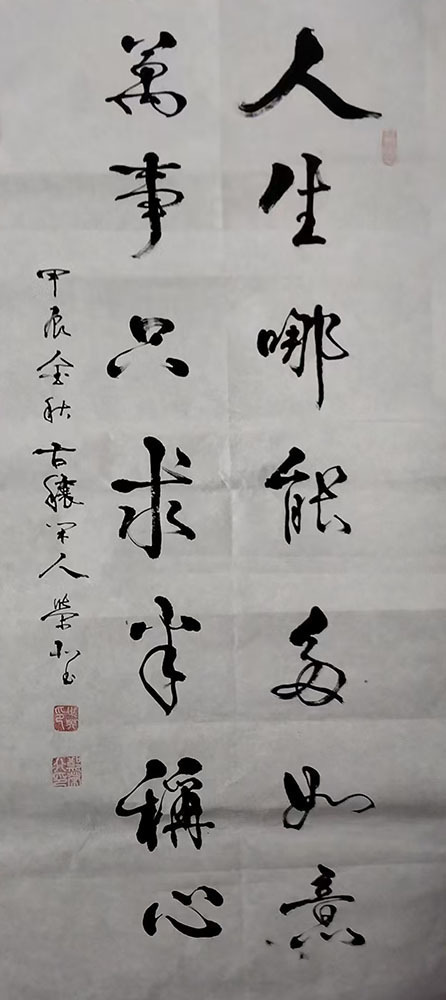 人生哪能多如意
萬事只求半稱心
甲辰金秋古穰閑人榮